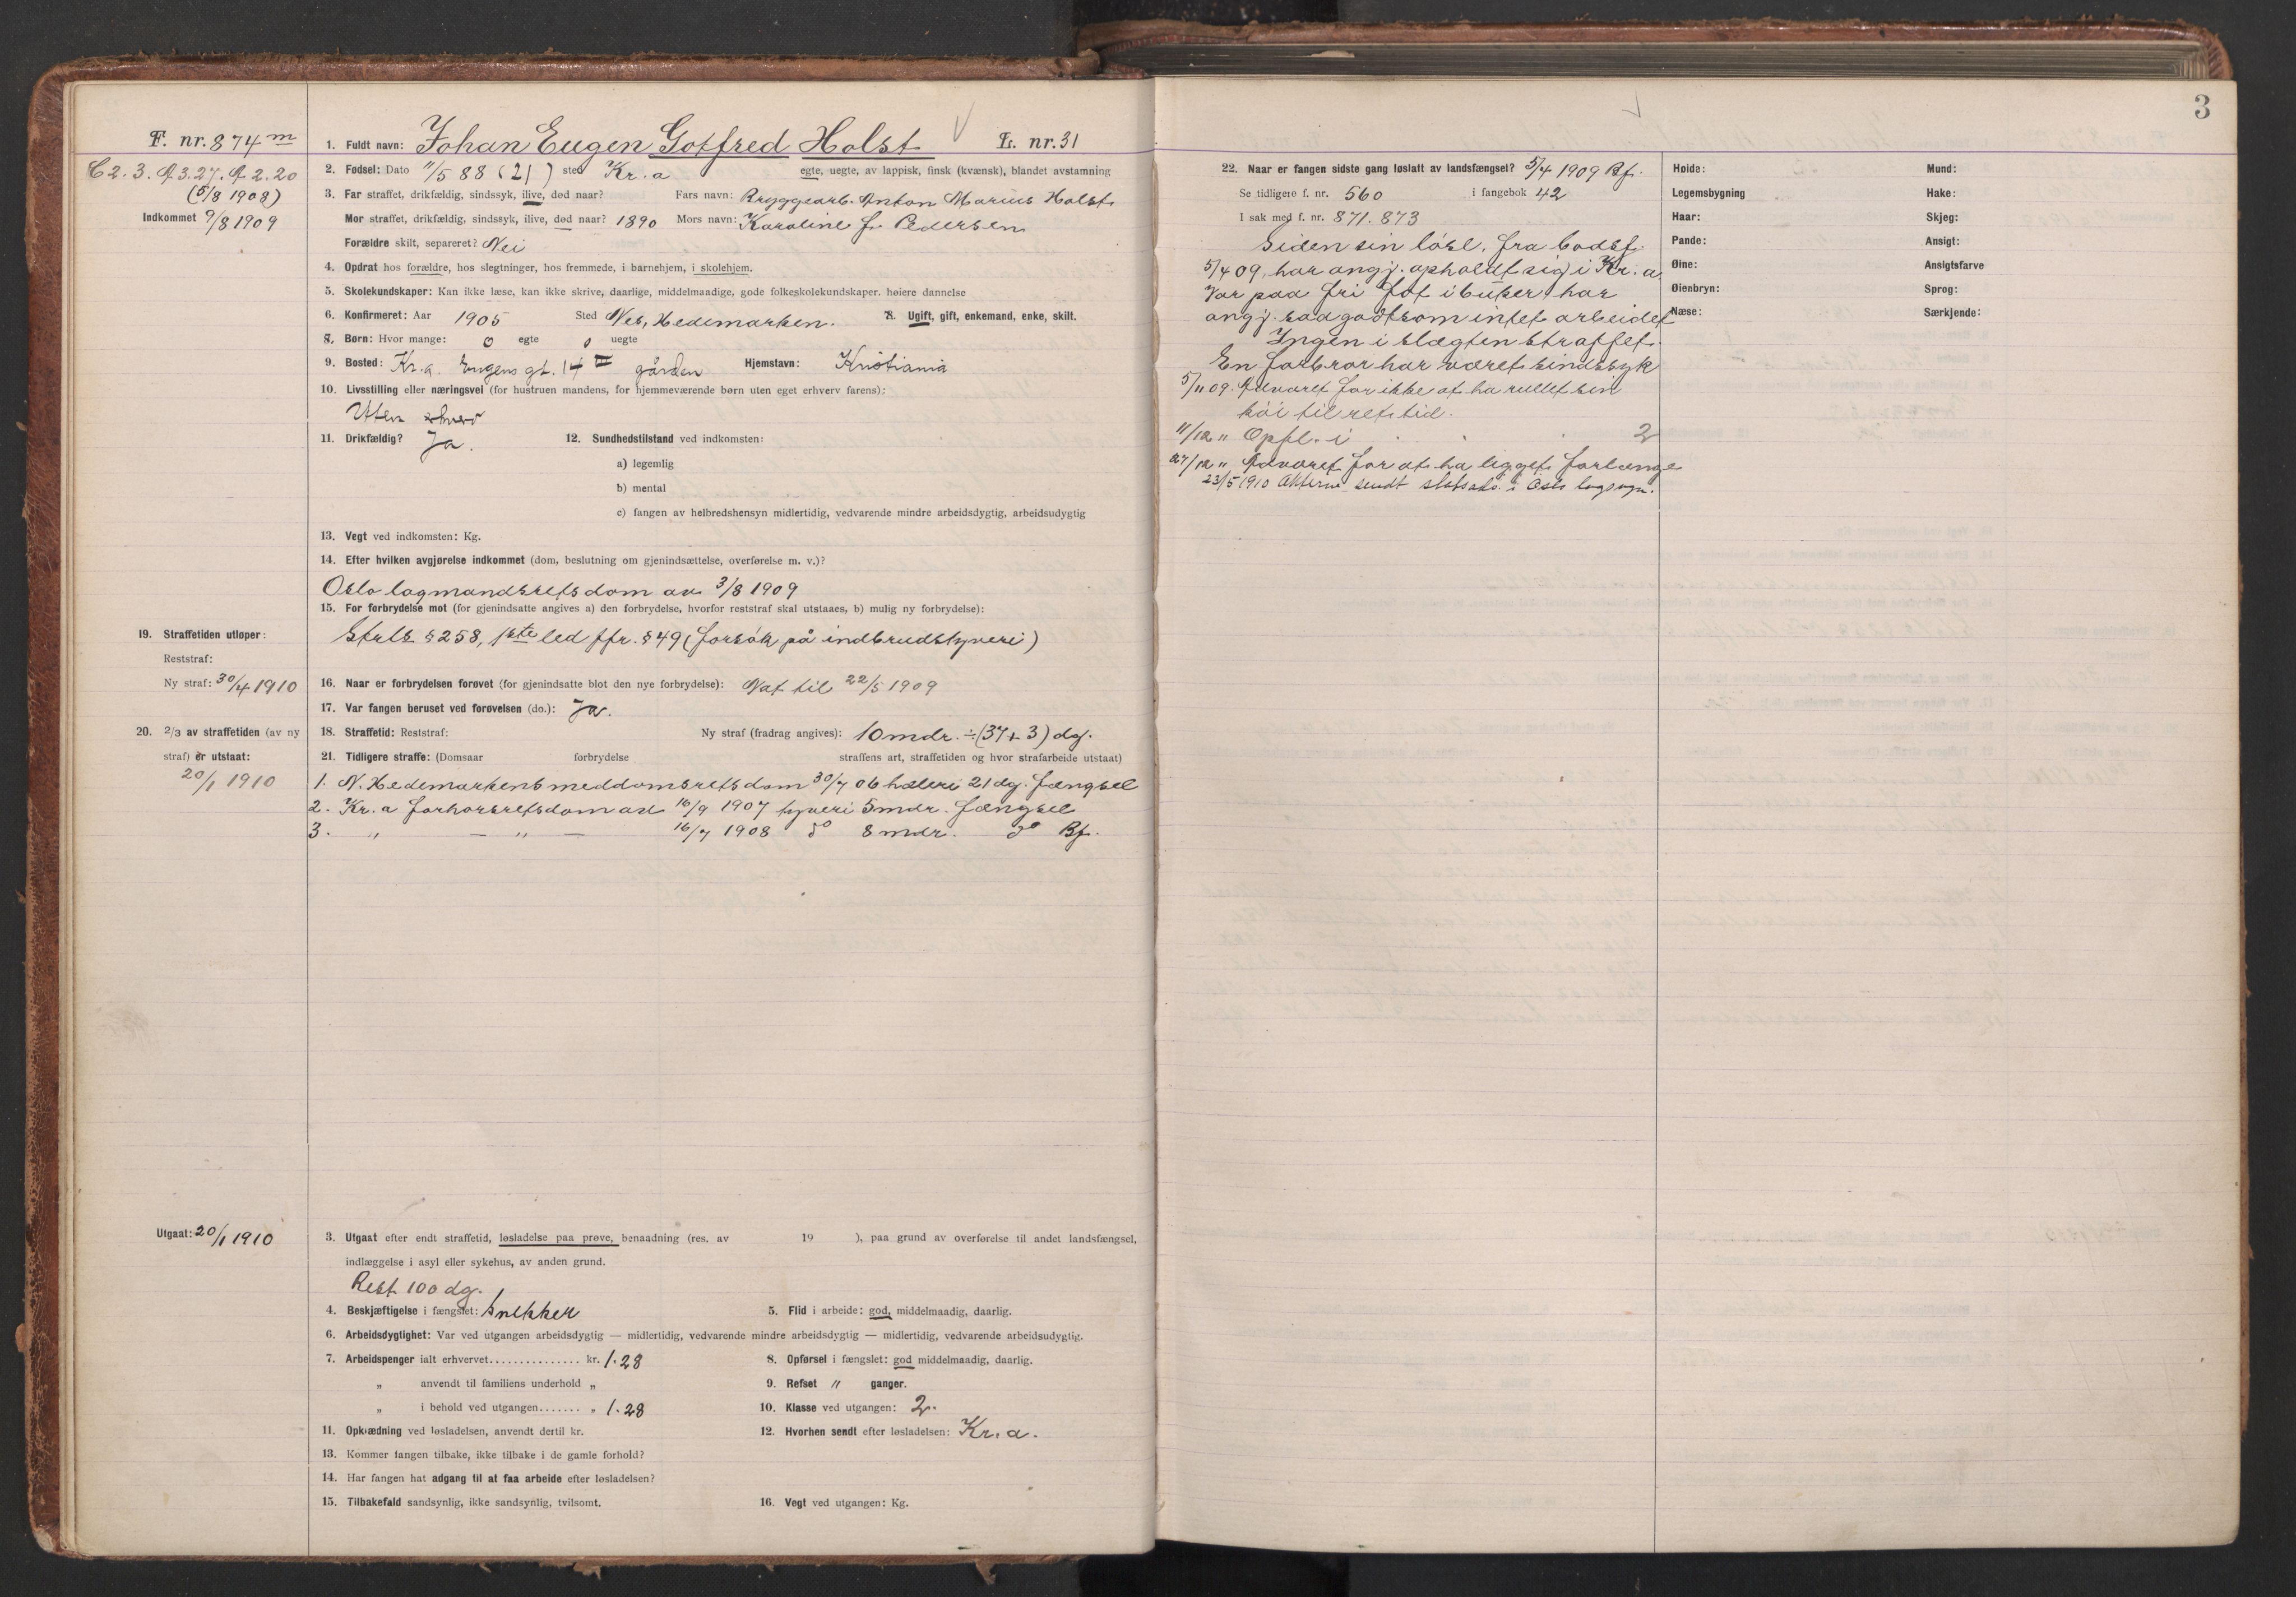 F. nr. 874 m
C 2. 3. A 3. 27. A 2. 20
(5/8 1908)
Indkommet 9/8 1909
1. Fuldt navn: Johan Eugen Gotfred Holst L. nr. 31
2. Fødsel: Dato 11/5 88 (21) sted Kr.a egte, uegte, av lappisk, finsk (kvænsk), blandet avstamning
3. Far straffet, drikfældig, sindssyk, ilive, død naar? Fars navn: Bryggearb. Anton Marius Holst
Mor straffet, drikfældig, sindssyk, ilive, død naar? 1890 Mors navn: Karoline f. Pedersen
Forældre skilt, separeret? Nei
4. Opdrat hos forældre, hos slegtninger, hos fremmede, i barnehjem, i skolehjem.
5. Skolekundskaper: Kan ikke læse, kan ikke skrive, daarlige, middelmaadige, gode folkeskolekundskaper. høiere dannelse
6. Konfirmeret: Aar 1905 Sted Nes, Hedemarken. 7. Ugift, gift, enkemand, enke, skilt.
8. Børn: Hvor mange: 0 egte 0 uegte
9. Bosted: Kr.a. Eugens gt. 14 III gården Hjemstavn: Kristiania
10. Livsstilling eller næringsvei (for hustruen mandens, for hjemmeværende børn uten eget erhverv farens):
Uten erhverv
11. Drikfældig? Ja. 12. Sundhedstilstand ved indkomsten:
a) legemlig
b) mental
c) fangen av helbredshensyn midlertidig, vedvarende mindre arbeidsdygtig, arbeidsudygtig
13. Vegt ved indkomsten: Kg.
14. Efter hvilken avgjørelse indkommet (dom, beslutning om gjenindsættelse, overførelse m. v.)?
Oslo lagmandsretsdom av 3/8 1909
15. For forbrydelse mot (for gjenindsatte angives a) den forbrydelse, hvorfor reststraf skal utstaaes, b) mulig ny forbrydelse):
Strls § 258, 1ste led jfr. § 49 (forsök på indbrudstyveri)
19. Straffetiden utløper:
Reststraf:
Ny straf: 30/4 1910
16. Naar er forbrydelsen forøvet (for gjenindsatte blot den nye forbrydelse): Nat til 22/5 1909
17. Var fangen beruset ved forøvelsen (do.): Ja.
20. 2/3 av straffetiden (av ny
straf) er utstaat:
20/1 1910
18. Straffetid: Reststraf: Ny straf (fradrag angives): 10 mdr. ÷ (37 + 3) dg.
21. Tidligere straffe: (Domsaar forbrydelse straffens art, straffetiden og hvor strafarbeide utstaat)
1. N. Hedemarkens meddomsretsdom 30/7 06 hæleri 21 dg. fængsel
2. Kr.a forhørsretsdom av 16/9 1907 tyveri 5 mdr. fængsel
3. " — " — 16/7 1908 do 8 mdr. do Bf.
Utgaat: 20/1 1910
3. Utgaat efter endt straffetid, løsladelse paa prøve, benaadning (res. av 19 ), paa grund av overførelse til andet landsfængsel,
indlæggelse i asyl eller sykehus, av anden grund.
Rest 100 dg.
4. Beskjæftigelse i fængslet: Snekker 5. Flid i arbeide: god, middelmaadig, daarlig.
6. Arbeidsdygtighet: Var ved utgangen arbeidsdygtig — midlertidig, vedvarende mindre arbeidsdygtig — midlertidig, vedvarende arbeidsudygtig.
7. Arbeidspenger ialt erhvervet............... kr. 1.28 8. Opførsel i fængslet: god middelmaadig, daarlig.
„ anvendt til familiens underhold „ 9. Refset " ganger.
„ i behold ved utgangen....... „ 1.28 10. Klasse ved utgangen: 2.
11. Opklædning ved løsladelsen, anvendt dertil kr. 12. Hvorhen sendt efter løsladelsen: Kr.a.
13. Kommer fangen tilbake, ikke tilbake i de gamle forhold?
14. Har fangen hat adgang til at faa arbeide efter løsladelsen?
15. Tilbakefald sandsynlig, ikke sandsynlig, tvilsomt. 16. Vegt ved utgangen: Kg.
3
22. Naar er fangen sidste gang løslatt av landsfængsel? 5/4 1909 Bf.
Se tidligere f. nr. 560 i fangebok 42
I sak med f. nr. 871. 873
Siden sin løsl. fra bodsf.
5/4 09, har angj. opholdt sig i Kr.a
Var paa fri fot i buker har
angj. saagodtsom intet arbeidet
Ingen i slægten straffet.
En farbror har været sindssyk
5/11 09. Advaret for ikke at ha rullet sin
köi til rets tid.
11/12 " Opfl. i . . . 2
27/12 " Advaret for at ha ligget forlænge
23/5 1910 Akterne sendt statsadv. i Oslo lagsogn.
Høide: Mund:
Legemsbygning Hake:
Haar: Skjeg:
Pande: Ansigt:
Øine: Ansigtsfarve
Øienbryn: Sprog:
Næse: Særkjende: